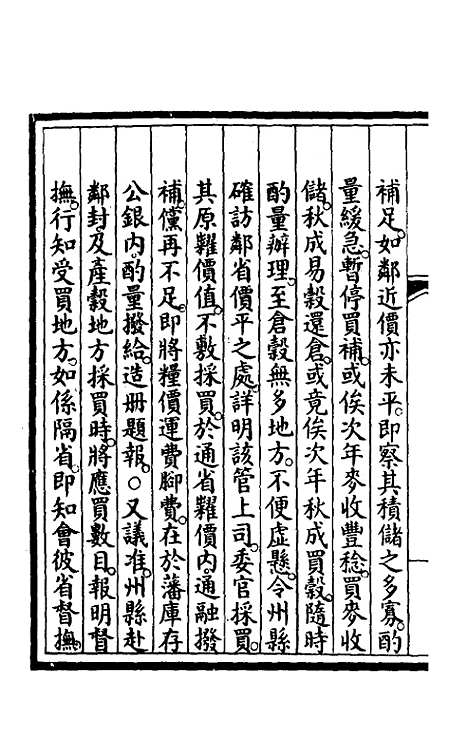 補足。如鄰近價亦未平。即察其積儲之多寡。酌
量緩急。暫停買補。或俟次年麥收豐稔。買麥收
儲。秋成易穀還倉。或竟俟次年秋成買穀。隨時
酌量辦理。至倉穀無多地方。不便虛懸。令州縣
確訪鄰省價平之處。詳明該管上司。委官採買。
其原糶價值。不敷採買。於通省糶價內。通融撥
補。儻再不足。即將糧價運費腳費。在於藩庫存
公銀內。酌量撥給。造册題報。○又議准。州縣赴
鄰封。及產穀地方採買時。將應買數目。報明督
撫。行知受買地方。如係隔省。即知會彼省督撫。